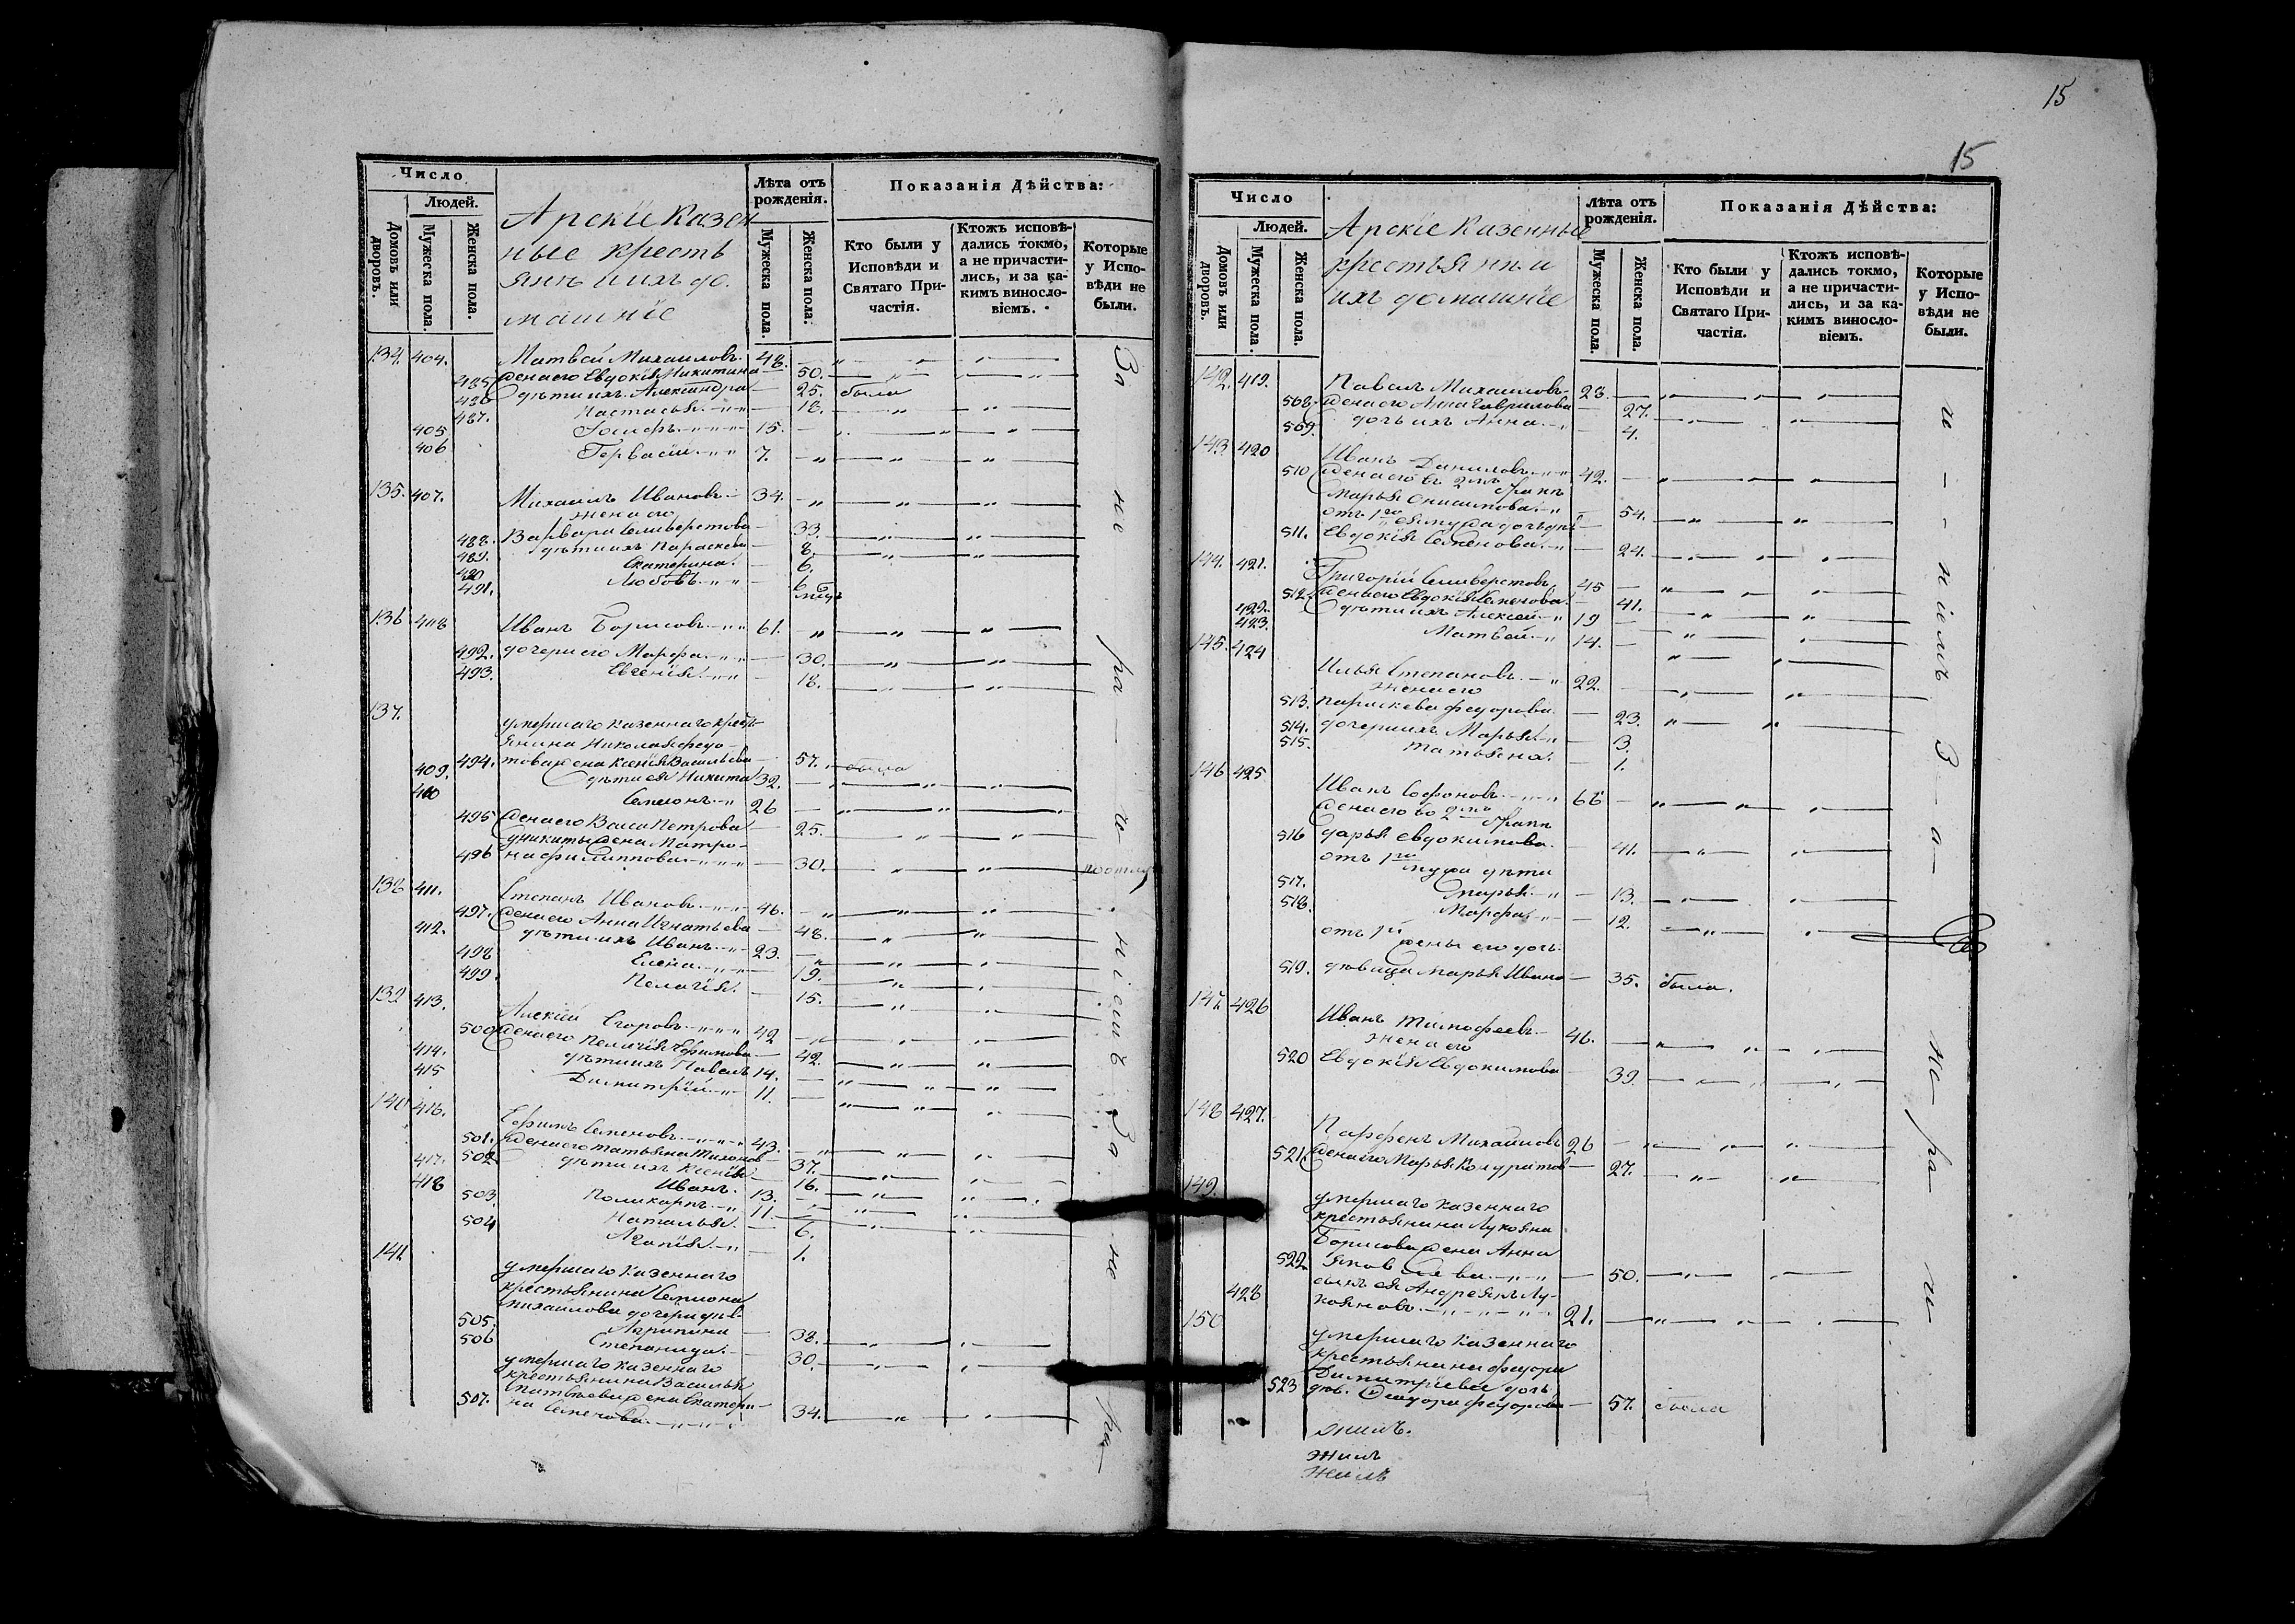 Число
Людей.
Домовъ или дворовъ.
Мужеска пола.
Женска пола.
Арскіе Казен
ные кресть
яне и ихъ до.
машніе
Лѣта отъ рожденія.
Мужеска пола.
Женска пола.
Показанія Дѣйства:
Кто были у Исповѣди и Святаго Причастія.
Ктожъ исповѣдались токмо, а не причастились, и за какимъ винословіемъ.
Которые у Исповѣди не были.
134. 404. Матвей Михаиловъ 48.
485 жена его Евдокія Никитина 50.
486 дѣти ихъ Александра 25. была
487. Настасья 18.
405 Іосифъ 15.
406 Гервасій 7.
135. 407. Михаилъ Ивановъ 34.
жена его
488. Варвара Селиверстова 33.
489. дѣти ихъ Параскева 8.
490 Екатерина 6.
491. Любовь 6
136 408 Иванъ Борисовъ 61.
492. дочери его Марфа 30.
493. Евгенія 18.
137. умершаго казеннаго кресть
янина Николая Федо
494. това жена Ксенія Васильева 57. была
409. дѣти ея Никита 32.
410 Семіонъ 26
495 жена его Васи Петрова 25.
у Никиты жена Матро
496 на Филиппова 30.
138 411. Степанъ Ивановъ 46.
497. жена его Анна Игнатьева 48.
412. дѣти ихъ Иванъ 23.
498 Елена 19.
499. Пелагія 15.
139 413. Алексій Егоровъ 42
500 жена его Пелагія Ефимова 42.
414. дѣти ихъ Павелъ 14.
415 Димитрій 11.
140 416. Ефимъ Семеновъ 43.
501. жена его Татьяна Тихонов 37.
502 дѣти ихъ Ксенія 16.
417. Иванъ 13.
418 Поликарпъ 11.
503. Наталья 6.
504 Агапія 1.
141 умершаго казеннаго
крестьянина Семиона
Михаилова дочери дѣв
505. Агрипина 38.
506 Степанида 30.
умершаго казеннаго
крестьянина Василья
Матвѣева жена Екатери
507. на Семенова 34.
За не ра че ніемъ За не ра
15
15
Число
Людей.
Домовъ или дворовъ.
Мужеска пола.
Женска пола.
Арскіе Казенные
крестьяне и
ихъ домашніе
Лѣта отъ рожденія.
Мужеска пола.
Женска пола.
Показанія Дѣйства:
Кто были у Исповѣди и Святаго Причастія.
Ктожъ исповѣдались токмо, а не причастились, и за какимъ винословіемъ.
Которые у Исповѣди не были.
142. 419. Павелъ Михаиловъ 28.
508. жена его Анна Гаврилова 27.
509. дочь ихъ Анна 4.
143. 420 Иванъ Даниловъ 42.
510 жена его въ 2мъ бракѣ
Марья Онисимова 54.
отъ 1го ея мужа дочь дѣв
511. Евдокія Семенова 24.
144. 421. Григорій Селиверстовъ 45
512. жена его Евдокія Семенова 41.
422. дѣти ихъ Алексей 19
423. Матвей 14.
145. 424 Илья Степановъ 22.
жена его
513. Параскева Федорова 23.
514. дочери ихъ Марья 3.
515. Татьяна 1.
146 425 Иванъ Софоновъ 66
жена его во 2мъ бракѣ
516 Дарья Евдокимова 41.
отъ 1го мужа дѣти
517. Марья 13.
518. Марфа 12.
отъ 1й жены его дочь
519. дѣвица Марья Ивано 35. была.
147. 426 Иванъ Тимофеевъ 46.
жена его
520 Евдокія Евдокимова 39.
148 427. Парфенъ Михаиловъ 26
521. жена его Марья Кондратов 27.
149. умершаго казеннаго
крестьянина Лукояна
Борисова жена Анна
522 Яковлева 50.
428 сынъ ея Андреянъ Лу
кояновъ 21.
150 умершаго казеннаго
крестьянина Федора
Димитріева дочь
523 дѣв. Феодора Федорова 57. была
жилъ.
жилъ
жилъ
ніемъ За не ра